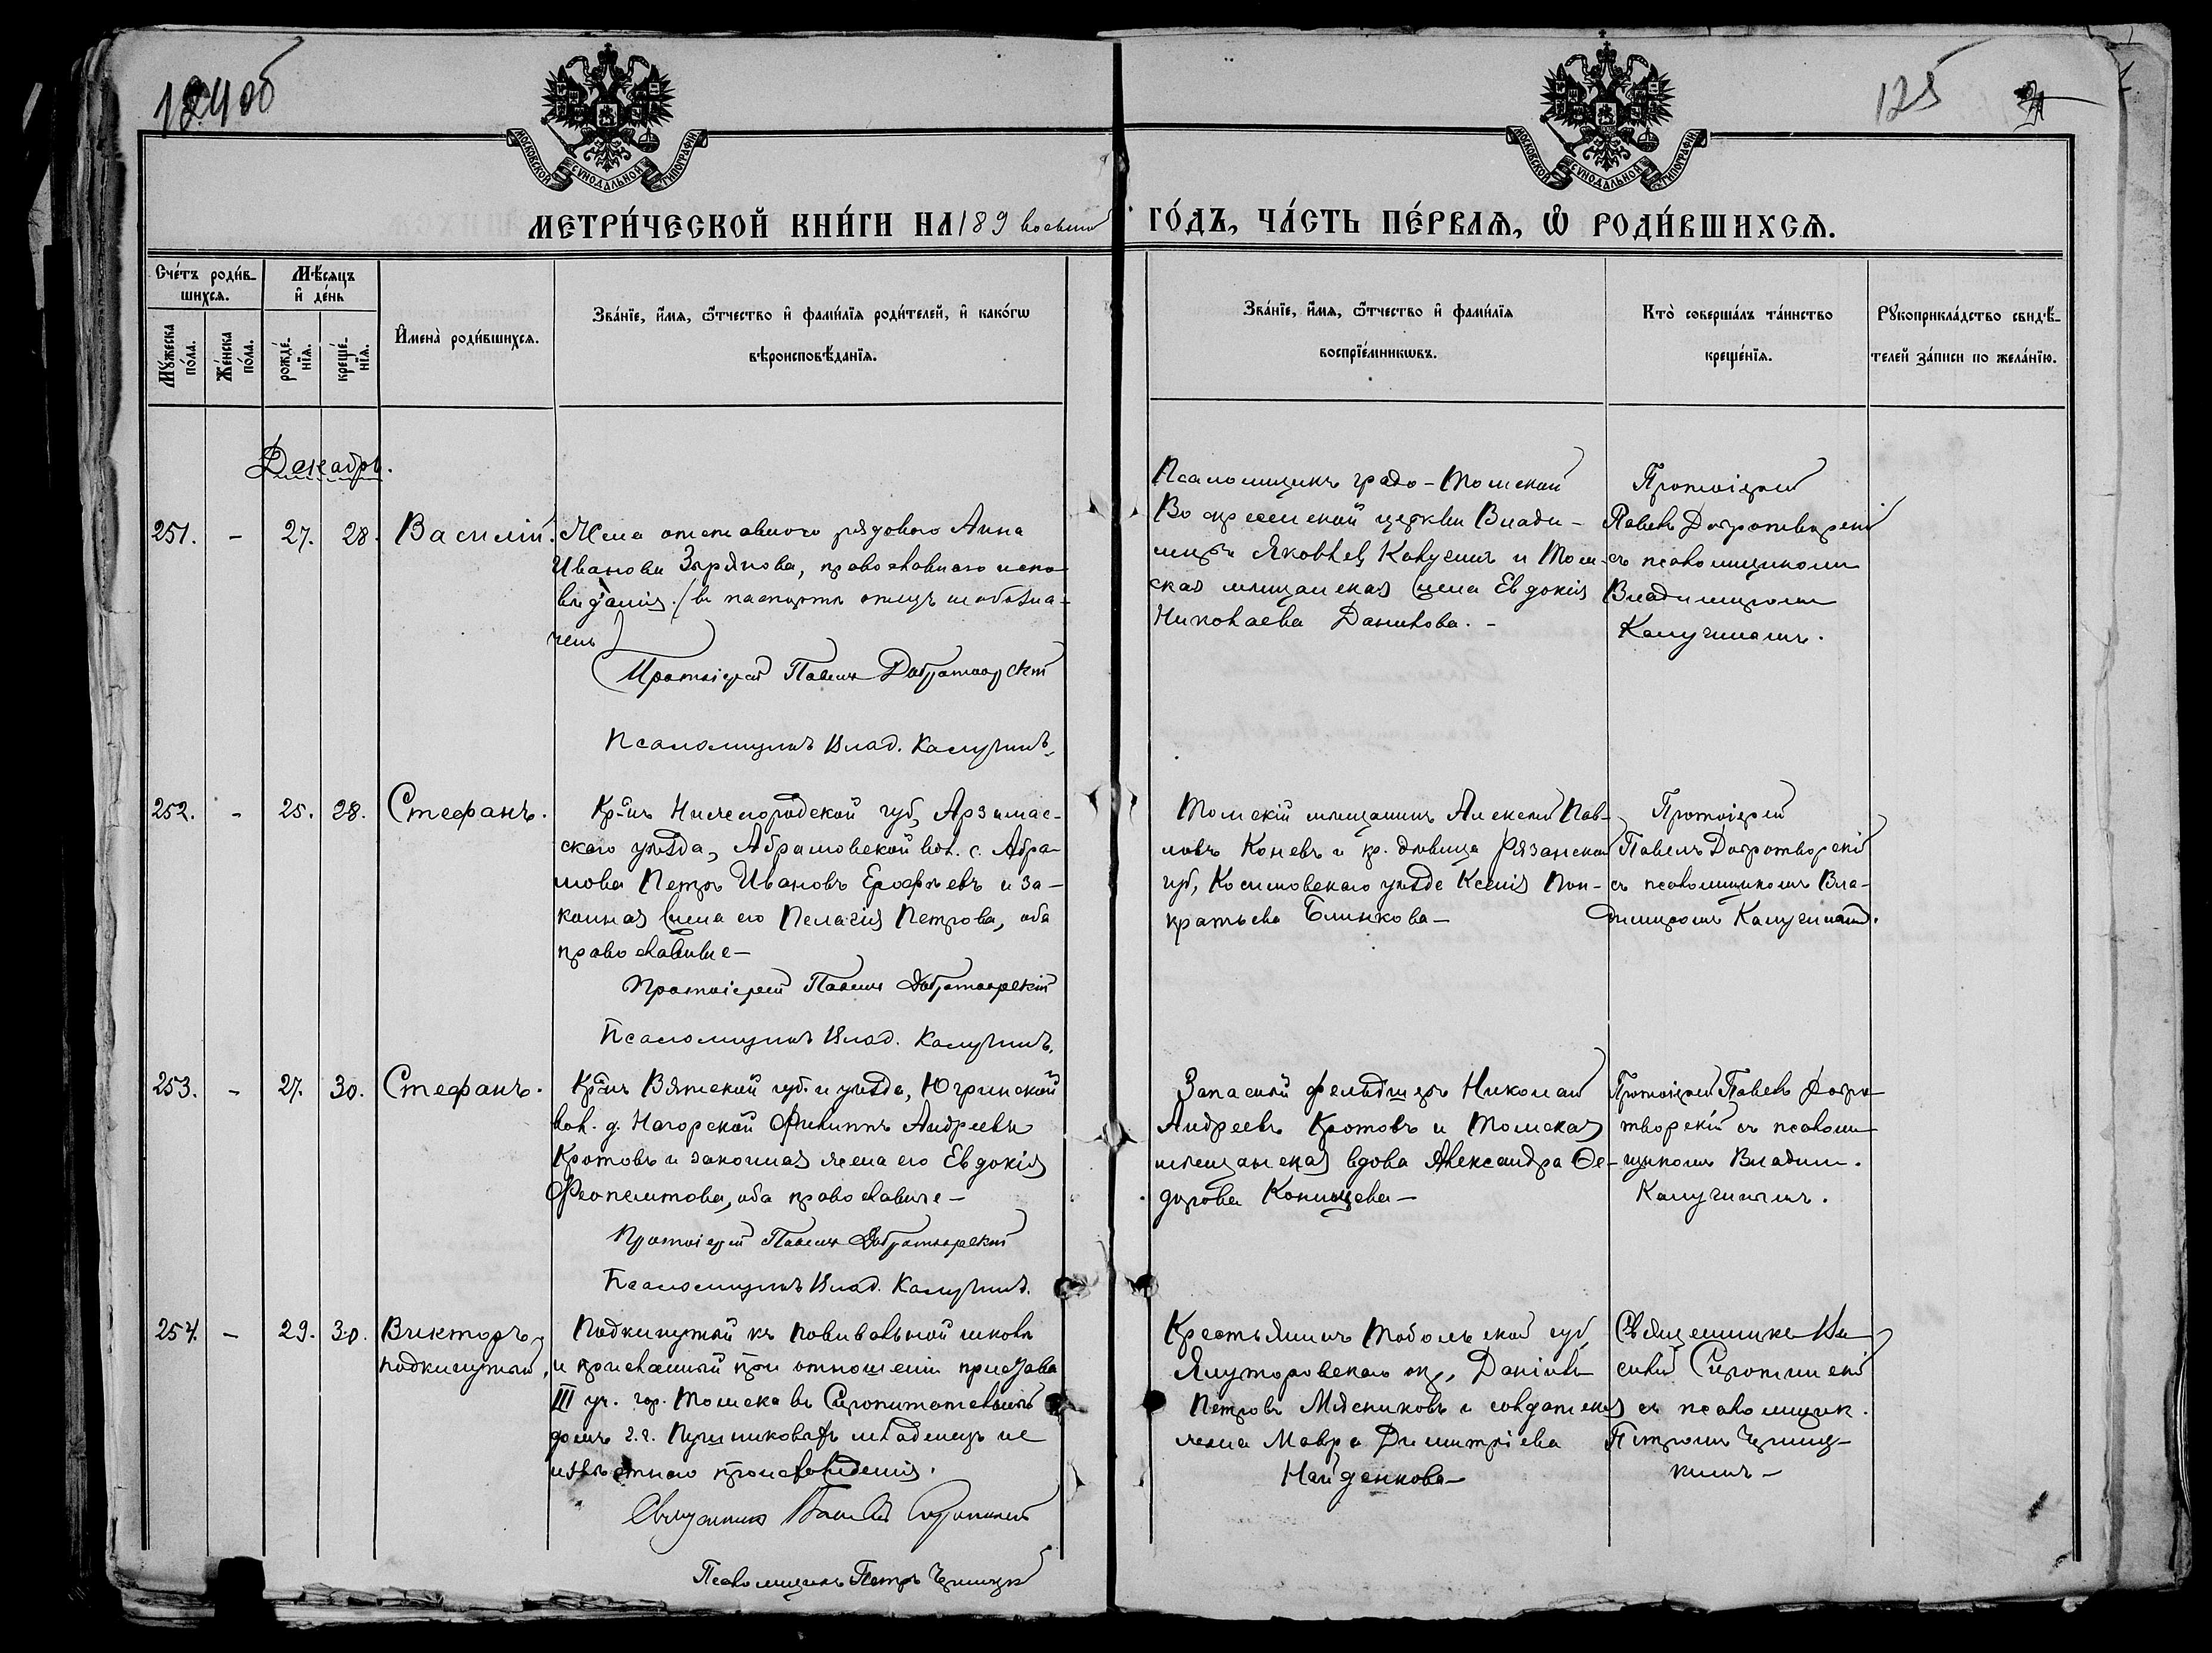 124 об
125
МОСКОВСКОЙ СѴНОДАЛЬНОЙ ТИПОГРАФІИ
МОСКОВСКОЙ СѴНОДАЛЬНОЙ ТИПОГРАФІИ
МЕТРИ́ЧЕСКОЙ КНИ́ГИ НА 189 восьмой ГО́ДЪ, ЧА́СТЬ ПЕ́РВАѦ, Ѡ҆ РОДИ́ВШИХСѦ.
Сче́тъ роди́в-
шихсѧ.
Мꙋжеска
по́ла.
Же́нска
по́ла.
Мѣ́сѧцъ
и҆ де́нь
рожде́-
нїѧ.
креще́-
нїѧ.
И҆мена̀ роди́вшихсѧ.
Зва́нїе, и҆́мѧ, ѻ҆́тчество и҆ фами́лїѧ роди́телей, и҆ како́гѡ
вѣроисповѣ́данїѧ.
Зва́нїе, и҆́мѧ, ѻ҆́тчество и҆ фами́лїѧ
воспрїе́мникѡвъ.
Кто̀ соверша́лъ та́инство
креще́нїѧ.
Рꙋкоприкла́дство свидѣ́-
телей за́писи по жела́нїю.
Декабрь.
251. - 27. 28. Василій.
Жена отставного рядового Анна
Иванова Зырянова, православнаго испо-
вѣданія. (въ паспортѣ отецъ не обозна-
ченъ)
Протоіерей Павелъ Добротворскій
Псаломщикъ Влад. Калугинъ.
Псаломщикъ градо-Томской
Воскресенской церкви Влади-
миръ Яковлев Калугинъ и Том-
ская мещанская жена Евдокія
Николаева Данилова. -
Протоіерей
Павелъ Добротворскій
съ псаломщикомъ
Владимиромъ
Калугинымъ.
252. - 25. 28. Стефанъ.
Кр-нъ Нижегородской губ, Арзамас-
скаго уѣзда, Абрамовской вол. с. Абра-
мова Петръ Ивановъ Ерофѣевъ и за-
конная жена его Пелагія Петрова, оба
православные-
Протоіерей Павелъ Добротворскій
Псаломщикъ Влад. Калугинъ.
Томскій мещанинъ Алексѣй Пав-
ловъ Коневъ и кр. дѣвица Рязанской
губ, Косимовскаго уѣзда Ксенія Пан-
кратьева Блинкова-
Протоіерей
Павелъ Добротворскій
съ псаломщикомъ Вла-
димиромъ Калугинымъ.
253. - 27. 30. Стефанъ.
Кр-нъ Вятской губ. и уѣзда, Югринской
вол. д. Нагорской Филиппъ Андреевъ
Кротовъ и законная жена его Евдокія
Феопемптова, оба православные-
Протоіерей Павелъ Добротворскій
Псаломщикъ Влад. Калугинъ.
Запасный фельдшеръ Николай
Андреевъ Кротовъ и Томская
мещанская вдова Александра Ѳе-
дорова Копищева-
Протоіерей Павелъ Добро-
творскій съ псалом-
щикомъ Владим.
Калугинымъ.
254. - 29. 30. Викторъ,
подкинутый.
Подкинутый къ повивальной школѣ
и присланный при отношеніи пристава
III уч. гор. Томска въ Сиропитательный
домъ г.г. Пушниковыхъ младенецъ не
извѣстнаго происхожденія.
Священникъ Василій Сиротинскій
Псаломщикъ Петръ
Крестьянинъ Тобольской губ,
Ялуторовскаго окр, Даніилъ
Петровъ Мѣсниковъ и солдатская
жена Мавра Димитріева
Найденкова-
Священникъ Ва-
силій Сиротинскій
съ псаломщик.
Петромъ